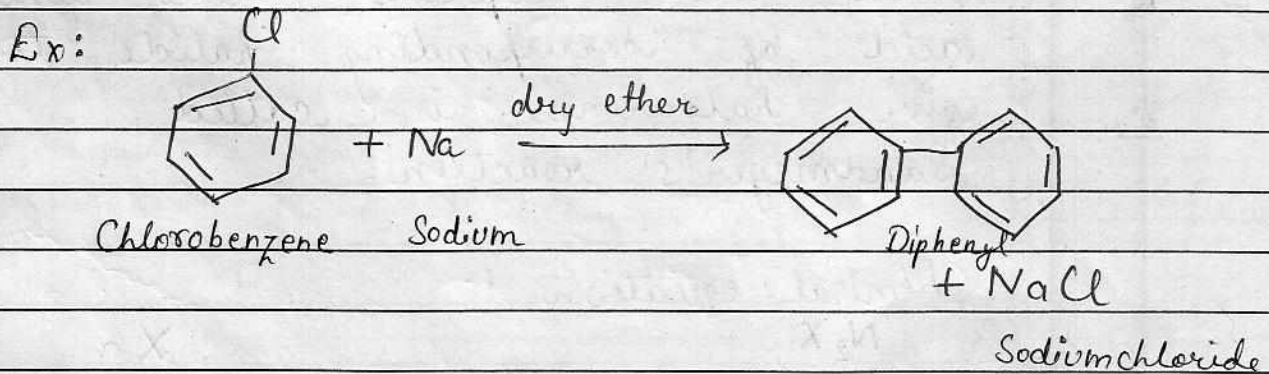 Ex:
Cl
+ Na dry ether
Chlorobenzene Sodium Diphenyl
+ NaCl
Sodiumchloride